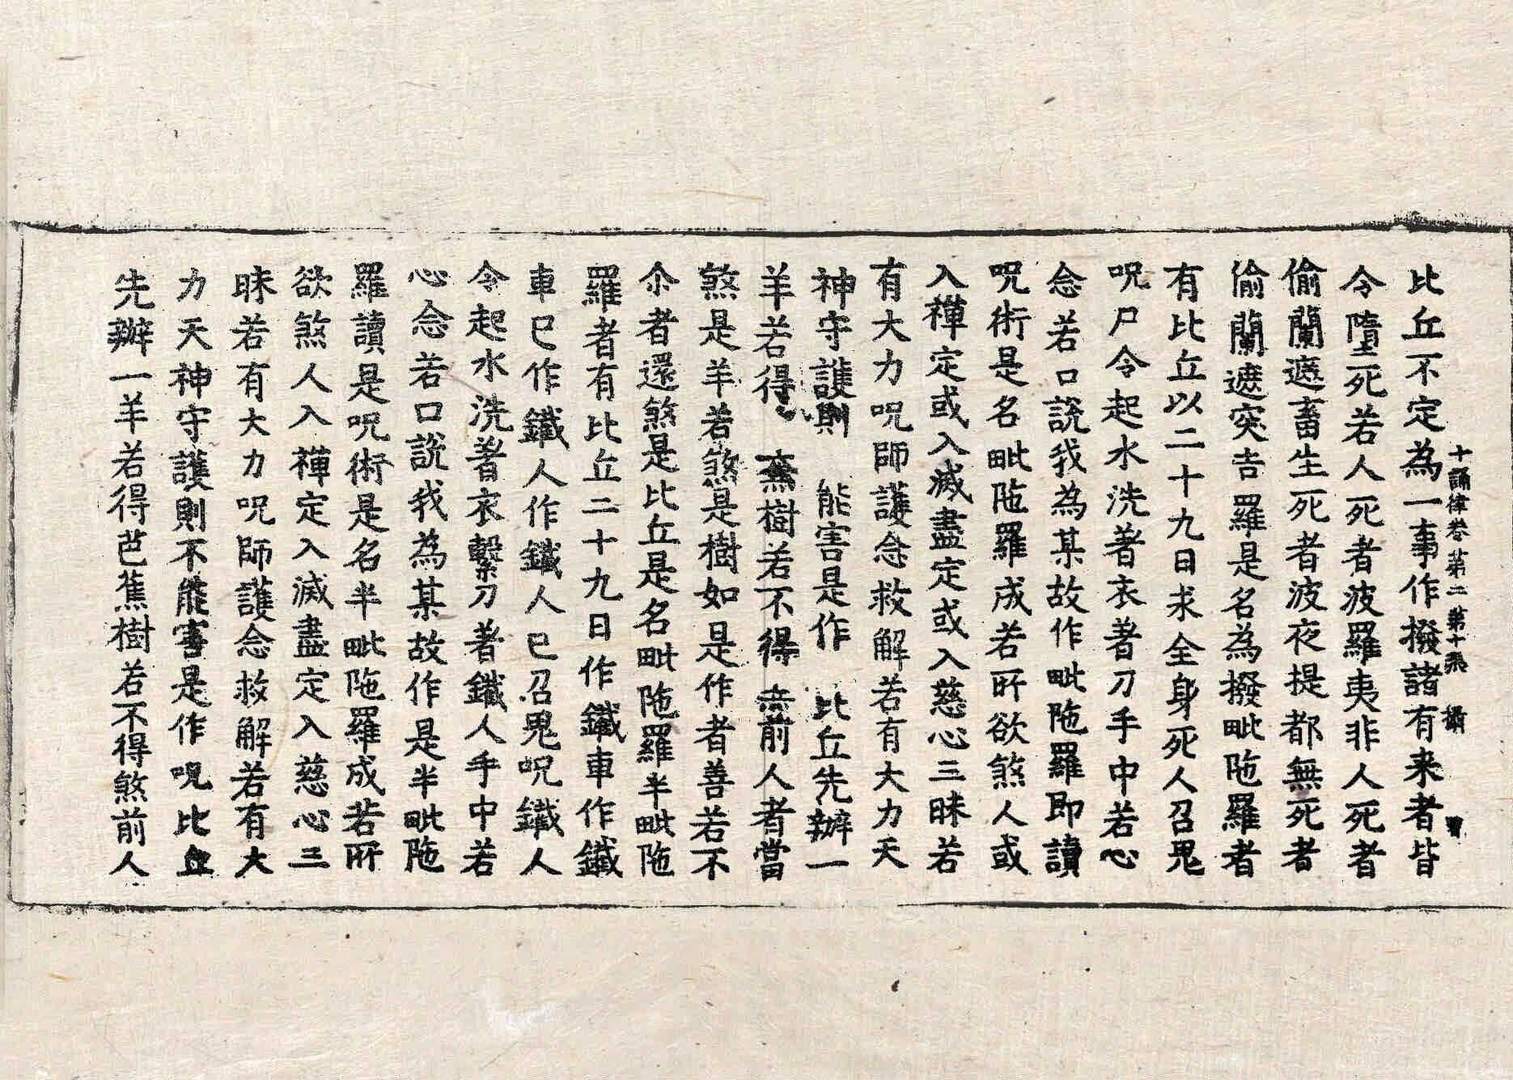 十誦律卷第二 第十張 攝
比丘不定為一事作撥諸有来者皆
令墮死若人死者波羅夷非人死者
偷蘭遮畜生死者波夜提都無死者
偷蘭遮突吉羅是名為撥毗陁羅者
有比丘以二十九日求全身死人召鬼
呪尸令起水洗著衣著刀手中若心
念若口說我為某故作毗陁羅即讀
呪術是名毗陁羅成若所欲煞人或
入禪定或入滅盡定或入慈心三昧若
有大力呪師護念救解若有大力天
神守護則 能害是作 比丘先辦一
羊若得 蕉樹若不得 前人者當
煞是羊若煞是樹如是作者善若不
尒者還煞是比丘是名毗陁羅半毗陁
羅者有比丘二十九日作鐵車作鐵
車已作鐵人作鐵人已召鬼呪鐵人
令起水洗著衣繫刀著鐵人手中若
心念若口說我為某故作是半毗陁
羅讀是呪術是名半毗陁羅成若所
欲煞人入禪定入滅盡定入慈心三
昧若有大力呪師護念救解若有大
力天神守護則不能害是作呪比丘
先辦一羊若得芭蕉樹若不得煞前人